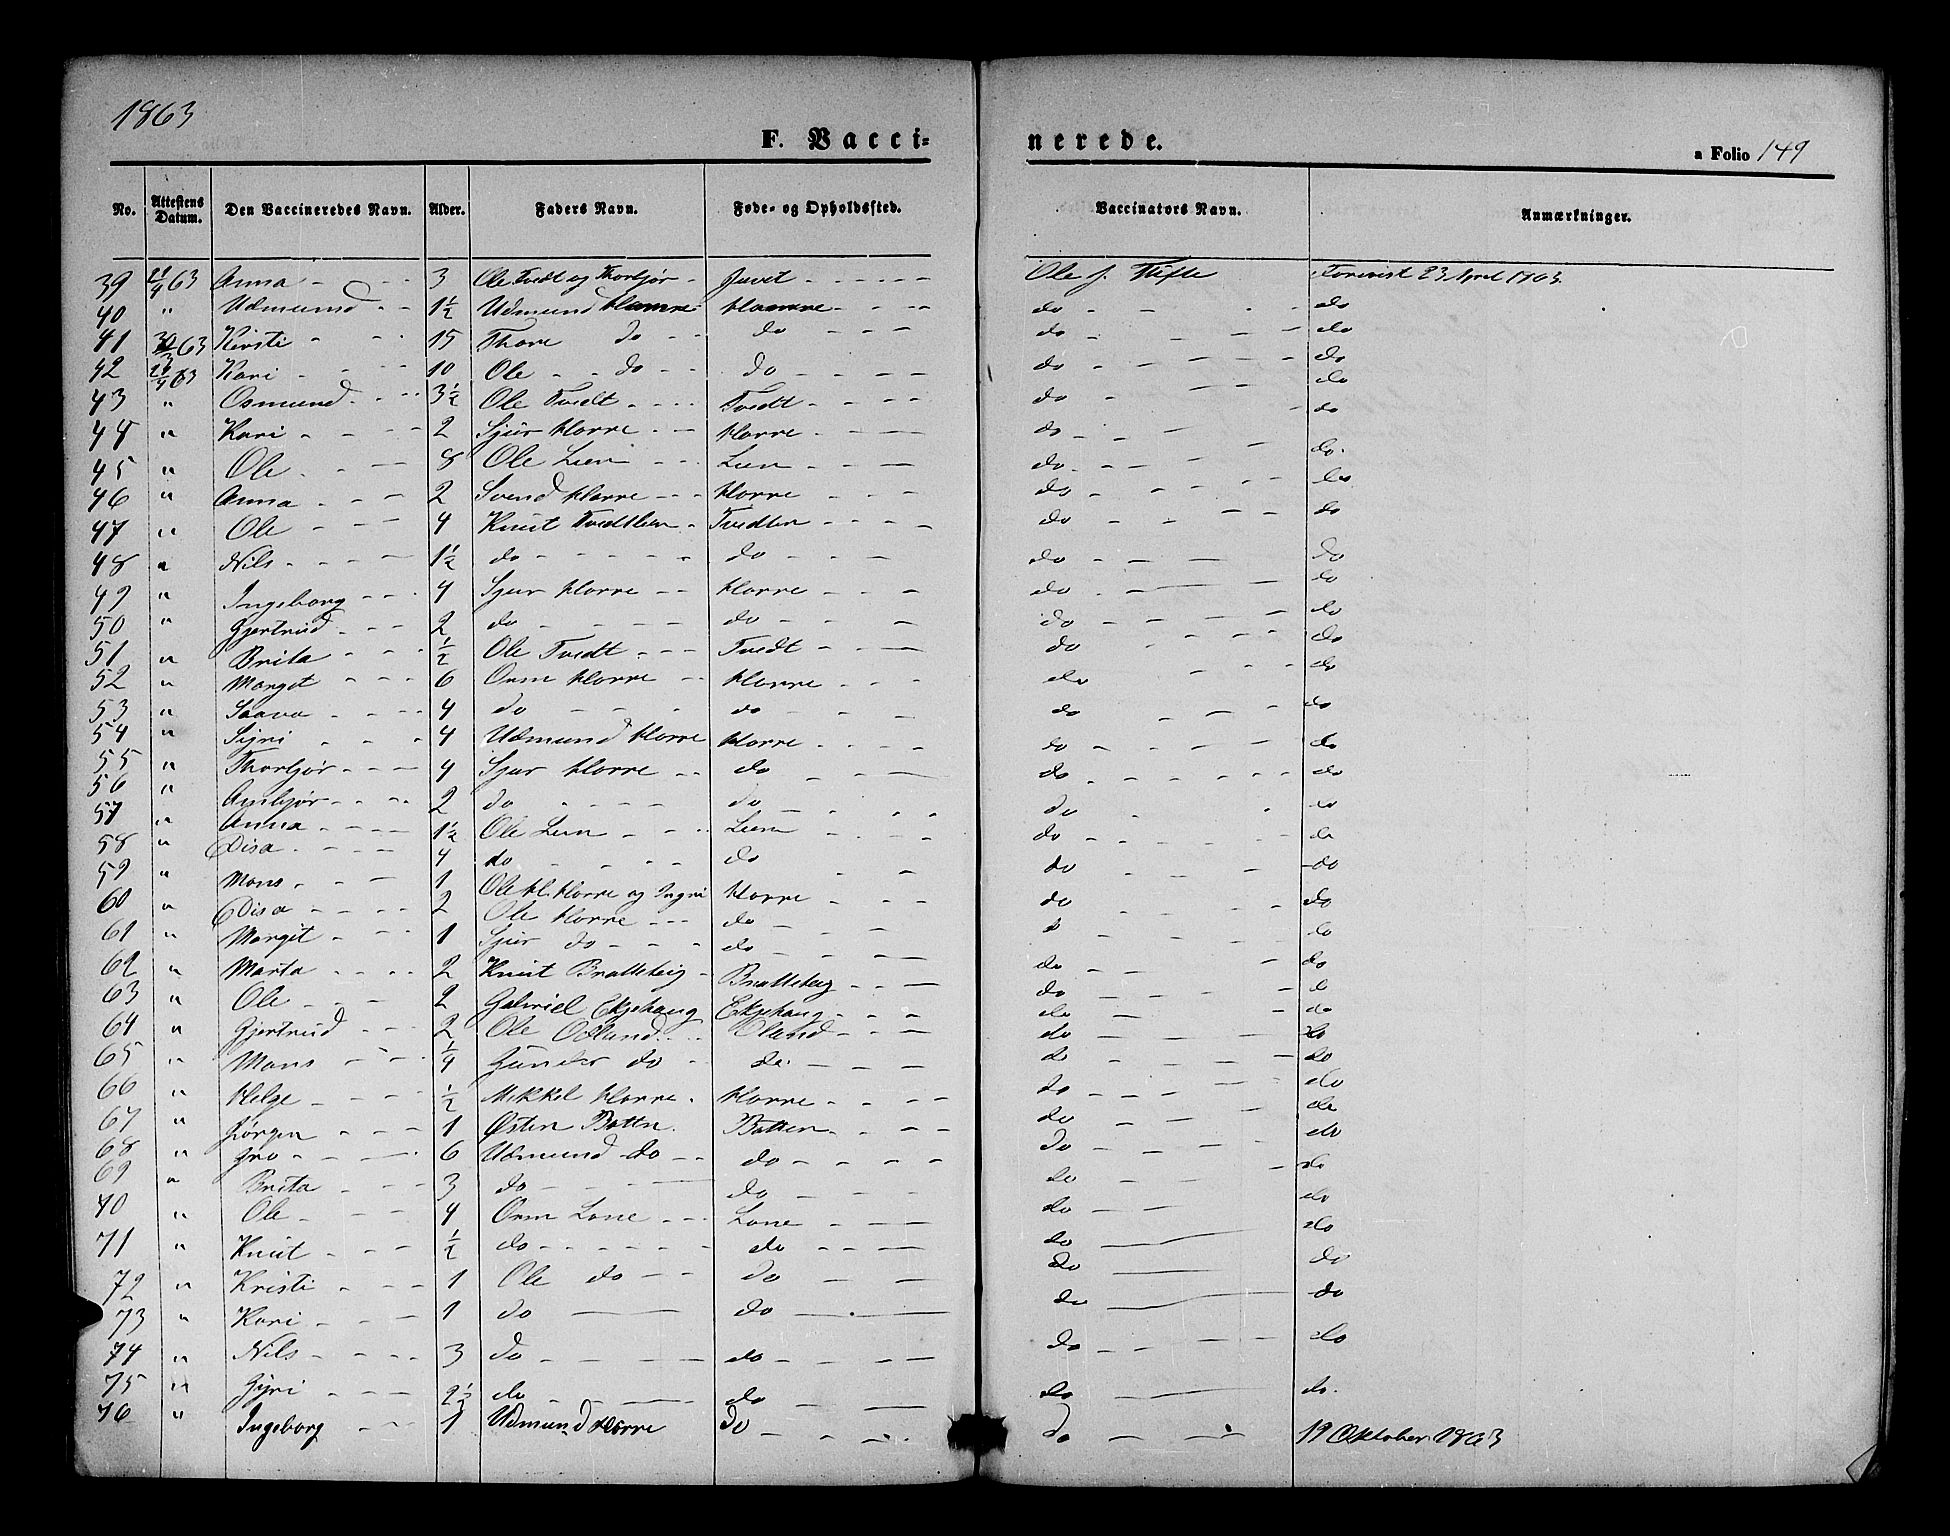 1863
F. Vacci=
nerede.
a Folio 149
No. Attestens Datum. Den Vaccineredes Navn. Alder. Faders Navn. Føde- og Opholdssted. Vaccinators Navn. Anmærkninger.
39 63 Anna 3 Ole Tvedt og Thorbjør Juvet Ole J. 23 April 1863
40 " Udmund 1½ Udmund Horre Horre do do
41 63 Kirsti 15 Thore do do do do
42 63 Kari 10 Ole do do do do
43 " Osmund 3½ Ole Tvedt Tvedt do do
44 " Kari 2 Sjur Horre Horre do do
45 " Ole 8 Ole Lien Lien do do
46 " Anna 2 Svend Horre Horre do do
47 " Ole 4 Knut Tvedten Tvedten do do
48 " Nils 1½ do do do do
49 " Ingeborg 4 Sjur Horre Horre do do
50 " Gjertrud 2 do do do do
51 " Brita ½ Ole Tvedt Tvedt do do
52 " Margit 6 Orm Horre Horre do do
53 " 4 do do do do
54 " Sijri 4 Udmund Horre Horre do do
55 " Thorbjør 4 Sjur Horre do do do
56 " Ambjør 2 do do do do
57 " Anna 1½ Ole Lien Lien do do
58 " Disa 4 do do do do
59 " Mons 1 Ole H. Horre og Ingri Horre do do
60 " Disa 2 Ole Horre do do do
61 " Margit 1 Sjur do do do
62 " Marta 2 Knut Bratteberg Bratteberg do do
63 " Ole 2 Gabriel Ekjehaug Ekjehaug do do
64 " Gjertrud 2 Ole Odland Oland do do
65 " Mons ¼ Gunder do do do do
66 " Helge ½ Mikkel Horre Horre do do
67 " Jørgen 1 Østen Botten Botten do do
68 " Gro 6 Udmund do do do do
69 " Brita 3 do do do do
70 " Ole 4 Orm Lone Lone do do
71 " Knut ½ do do do do
72 " Kristi 1 Ole do do do do
73 " Kari 1 do do do do
74 " Nils 3 do do do do
75 " Gyri 2½ do do do do
76 " Ingeborg 1 Udmund Horre do do 19 Oktober 1863